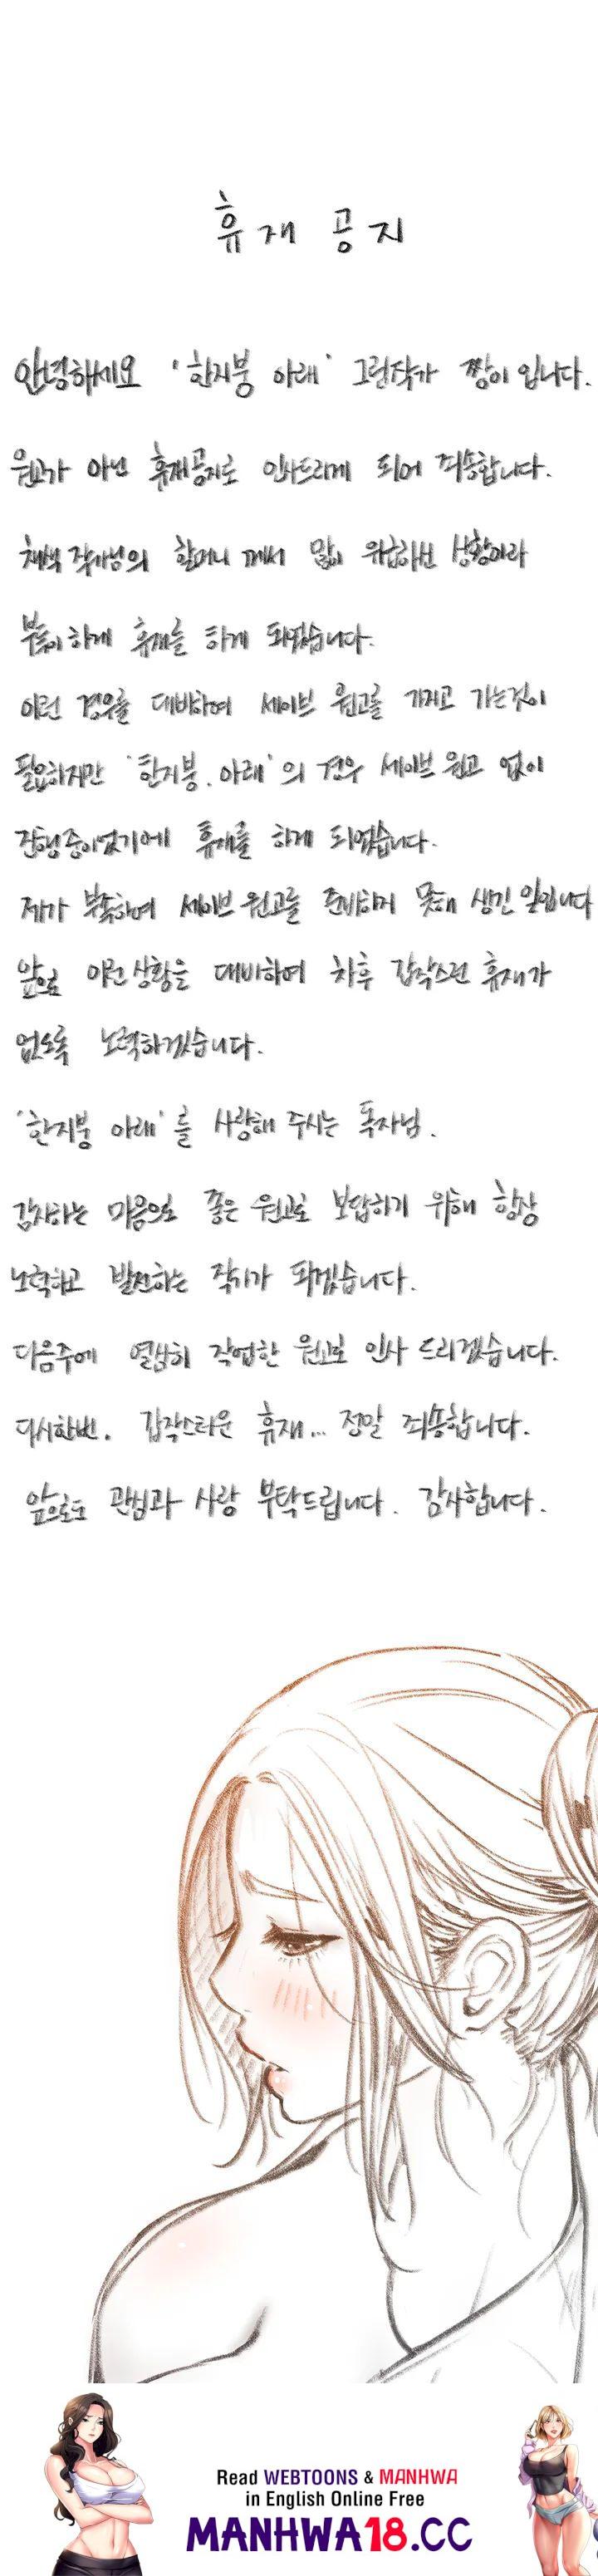 휴재 공지
안녕하세요 '한지붕 아래' 그림작가 짱이 입니다.
원고가 아닌 휴재공지로 인사드리게 되어 죄송합니다.
채색 작가님의 할머니 께서 많이 위급하신 상황이라
부득이하게 휴재를 하게 되었습니다.
이런 경우를 대비하여 세이브 원고를 가지고 가는것이
필요하지만 '한지붕 아래'의 경우 세이브 원고 없이
진행중이었기에 휴재를 하게 되었습니다.
제가 부족하여 세이브 원고를 준비하지 못해 생긴 일입니다
앞으로 이런 상황을 대비하여 차후 갑작스런 휴재가
없도록 노력하겠습니다.
'한지붕 아래'를 사랑해 주시는 독자님.
감사하는 마음으로 좋은 원고로 보답하기 위해 항상
노력하고 발전하는 작가가 되겠습니다.
다음주에 열심히 작업한 원고로 인사 드리겠습니다.
다시한번. 갑작스러운 휴재... 정말 죄송합니다.
앞으로도 관심과 사랑 부탁드립니다. 감사합니다.
Read WEBTOONS & MANHWA
in English Online Free
MANHWA18.CC